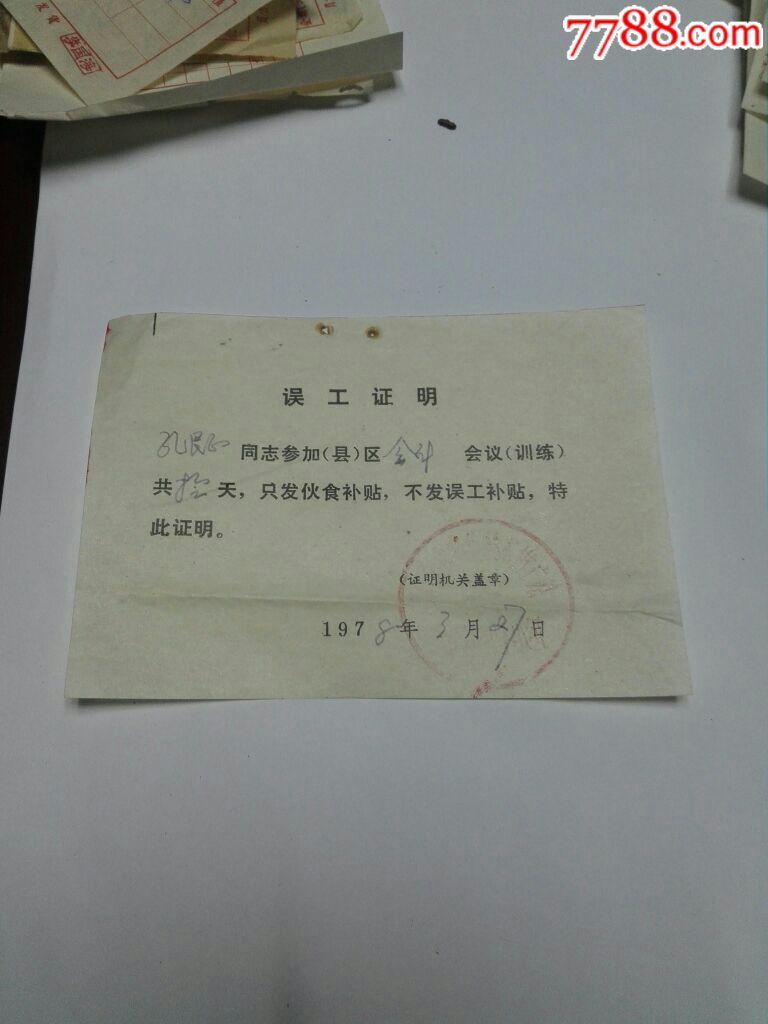 7788.com
误工证明
孔民正 同志参加(县)区 会计 会议(训练)
共拾天，只发伙食补贴，不发误工补贴，特
此证明。
(证明机关盖章)
1978年3月27日